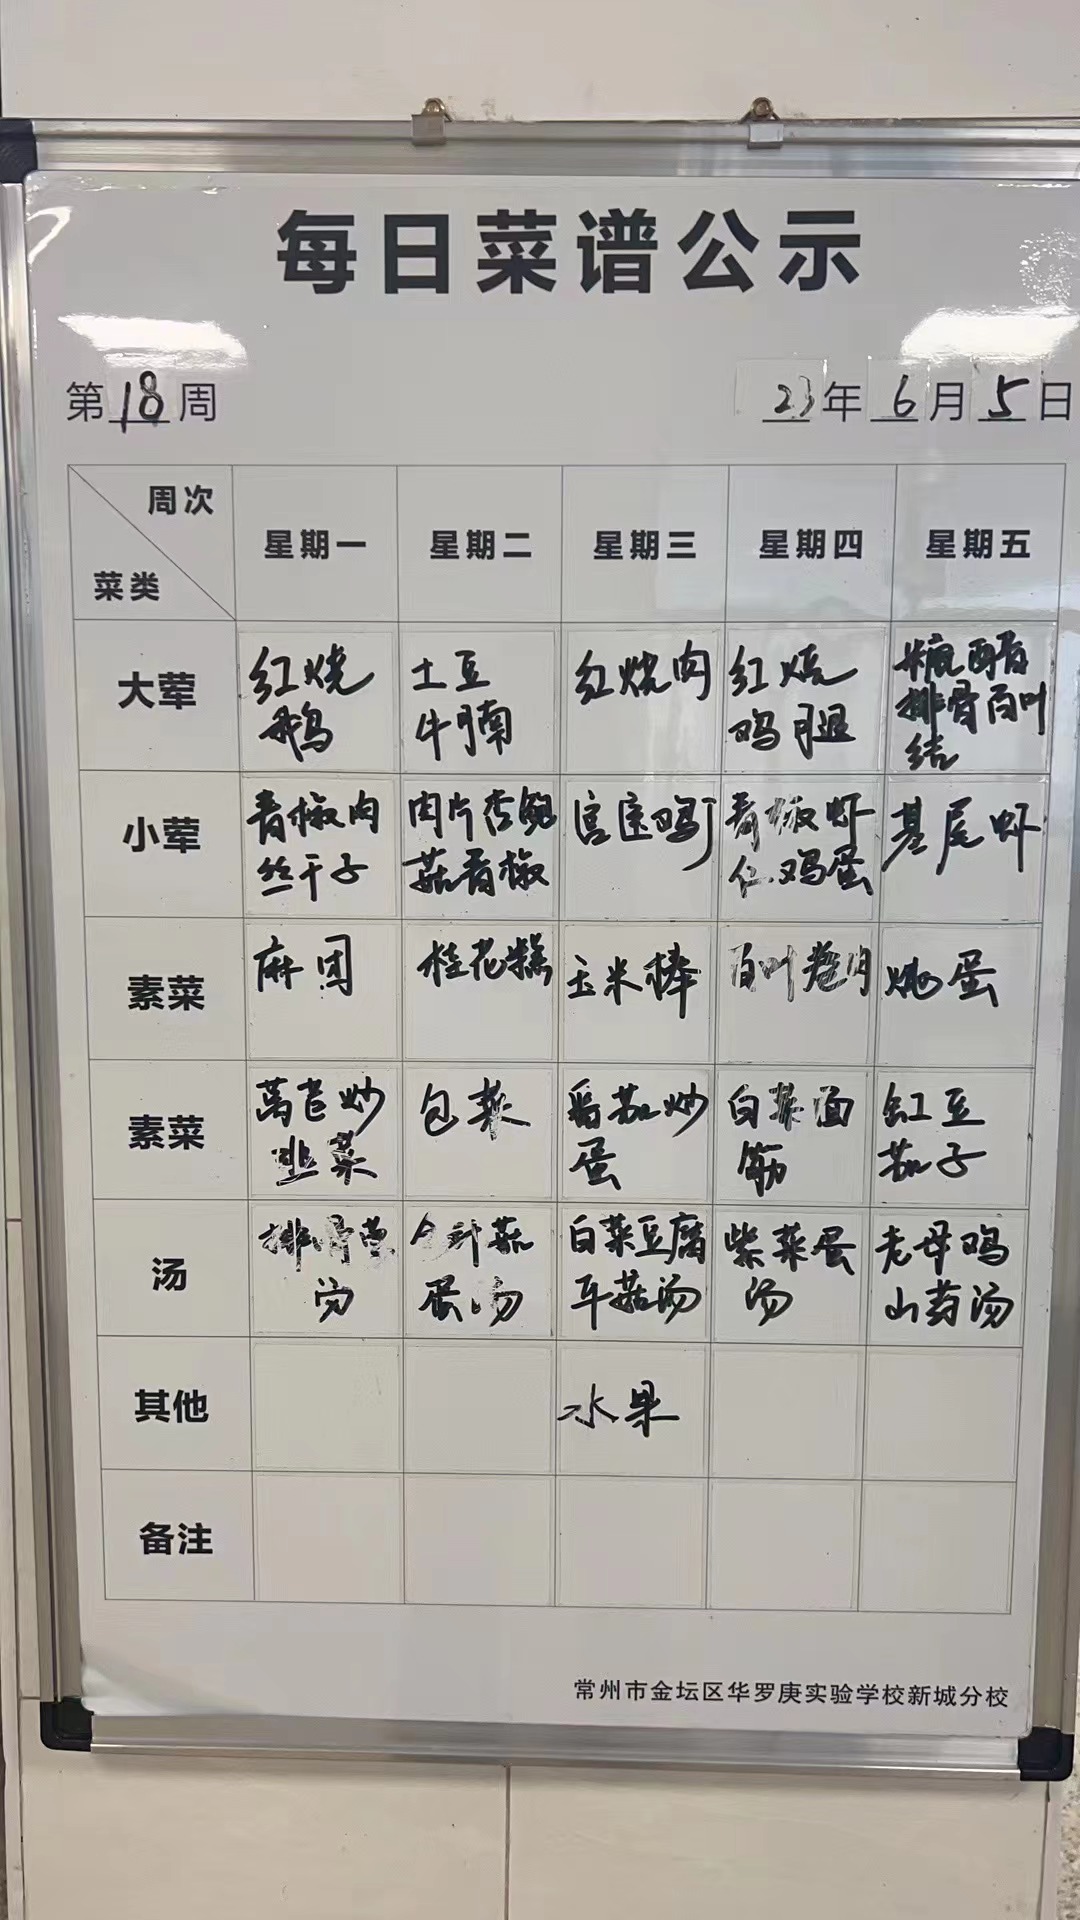 每日菜谱公示
第18周
23年6月5日
周次
菜类
星期一 星期二 星期三 星期四 星期五
大荤
红烧
鹅
土豆
牛腩
红烧肉
红烧
鸡腿
糖醋
排骨百叶
结
小荤
青椒肉
丝干子
肉片杏鲍
菇青椒
宫宝鸡丁
青椒虾
仁鸡蛋
基尾虾
素菜
麻团
桂花糕
玉米棒
百叶卷肉
蛋
素菜
莴苣炒
韭菜
包菜
番茄炒
蛋
白菜面
筋
豇豆
茄子
汤
排骨
汤
金针菇
蛋汤
白菜豆腐
平菇汤
紫菜蛋
汤
老母鸡
山药汤
其他
水果
备注
常州市金坛区华罗庚实验学校新城分校